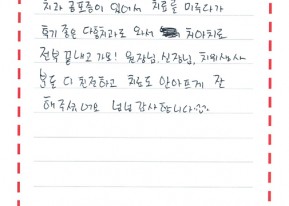 치과 공포증이 있어서 치료를 미루다가
후기 좋은 다름치과로 와서 치아치료
전부 끝내고 가요! 원장님, 실장님, 치위생사
분들 다 친절하고 치료도 안아프게 잘
해주셨어요 넘넘 감사합니다